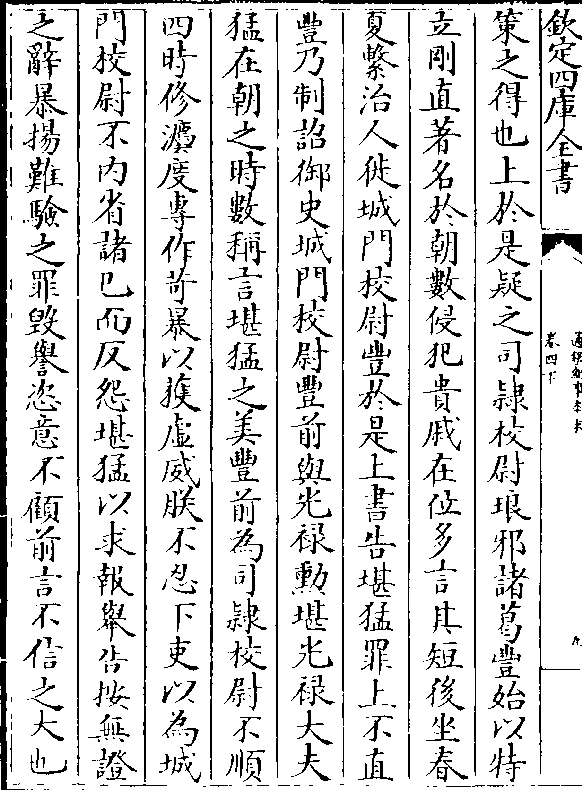 欽定四庫全書
卷四下
策之得也上於是疑之司隸校尉琅邪諸葛豐始以特
立剛直著名於朝數侵犯貴戚在位多言其短後坐春
夏繫治人徙城門校尉豐於是上書告堪猛罪上不直
豐乃制詔御史城門校尉豐前與光禄勳堪光禄大夫
猛在朝之時數稱言堪猛之美豐前為司隸校尉不順
四時修灋度專作苛暴以獲虛威朕不忍下吏以為城
門校尉不内省諸己而反怨堪猛以求報舉告按無證
之辭暴揚難驗之罪毁譽恣意不顧前言不信之大也